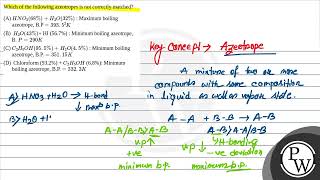 Which of the following azeotropes is not correctly matched?
(A) HNO₃(68%) + H₂O(32%) : Maximum boiling
azeotrope, B.P = 393. 5K
(B) H₂O(43%)+ HI (56.7%) : Minimum boiling azeotrope,
B. P = 290K
(C) C₂H₅OH(95. 5%) + H₂O(4. 5%) : Minimum boiling
azeotrope, B.P = 351. 15K
(D) Chloroform (93.2%) + C₂H₅OH (6.8%): Minimum
boiling azeotrope, B.P = 332. 3K
A> HNO3+H2O → H-bond
↳ max b.p.
B> H2O+H
Key Concept → Azeotrope
A mixture of two or more
compounds with same composition
in liquid as well as vapour state.
A – A + B-B → A-B
A-A/B-B > A-B
A-B > A-A, B-B
v.p ↑
+ve
minimum b.p.
v.p ↓ H-bonding
-ve deviation
maximum b.p.
PW